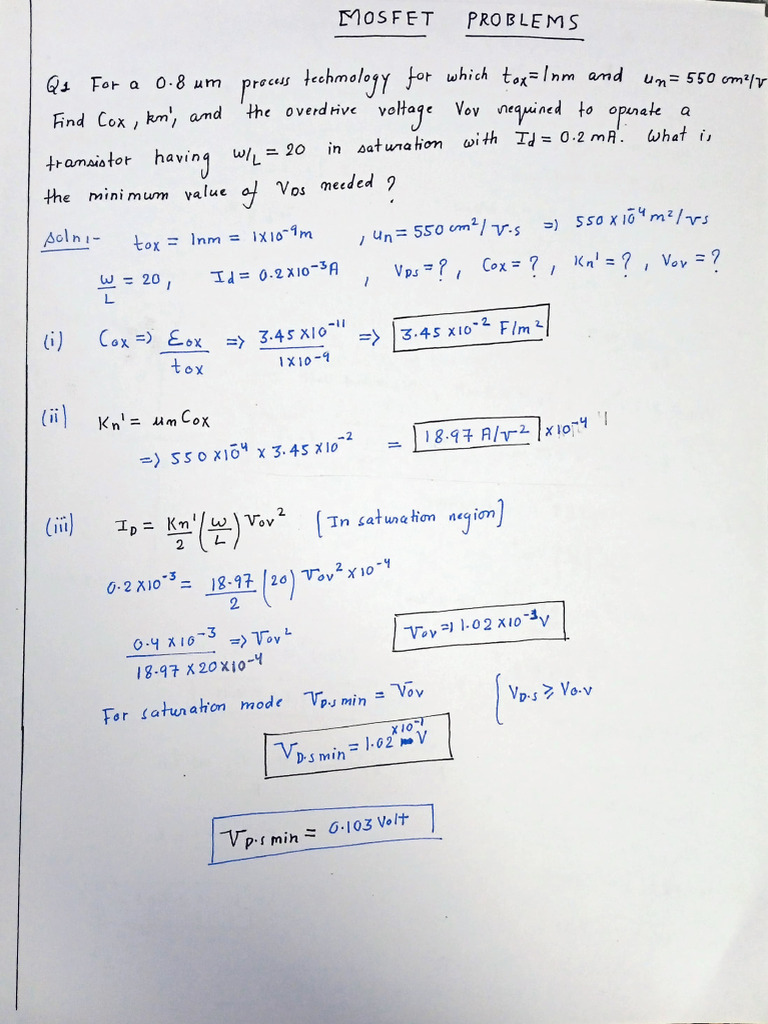 MOSFET PROBLEMS
Q1 For a 0.8 um process technology for which tox=1nm and un= 550 cm²/v
Find Cox, kn', and the overdrive voltage Vov required to operate a
transistor having W/L = 20 in saturation with Id = 0.2 mA. What is
the minimum value of VDS needed?
Soln:- tox = 1nm = 1x10⁻⁹m , un = 550 cm²/V.s => 550 x10⁻⁴ m²/vs
W/L = 20, Id = 0.2x10⁻³A , VDS = ?, Cox = ?, Kn' = ?, Vov = ?
(i) Cox => εox/tox => 3.45 x10⁻¹¹/1x10⁻⁹ => 3.45 x10⁻² F/m²
(ii) Kn' = un Cox
=> 550x10⁻⁴ x 3.45x10⁻² = 18.97 A/V² x10⁻⁴
(iii) ID = Kn'/2 (W/L) Vov² [In saturation region]
0.2x10⁻³ = 18.97/2 (20) Vov² x10⁻⁴
0.4 x10⁻³/18.97 x20x10⁻⁴ => Vov² Vov => 1.02 x10⁻³V
For saturation mode VD.s min = Vov { VD.s ≥ Vo.v
VD.s min = 1.02 x10⁻¹ V
VD.s min = 0.103 Volt